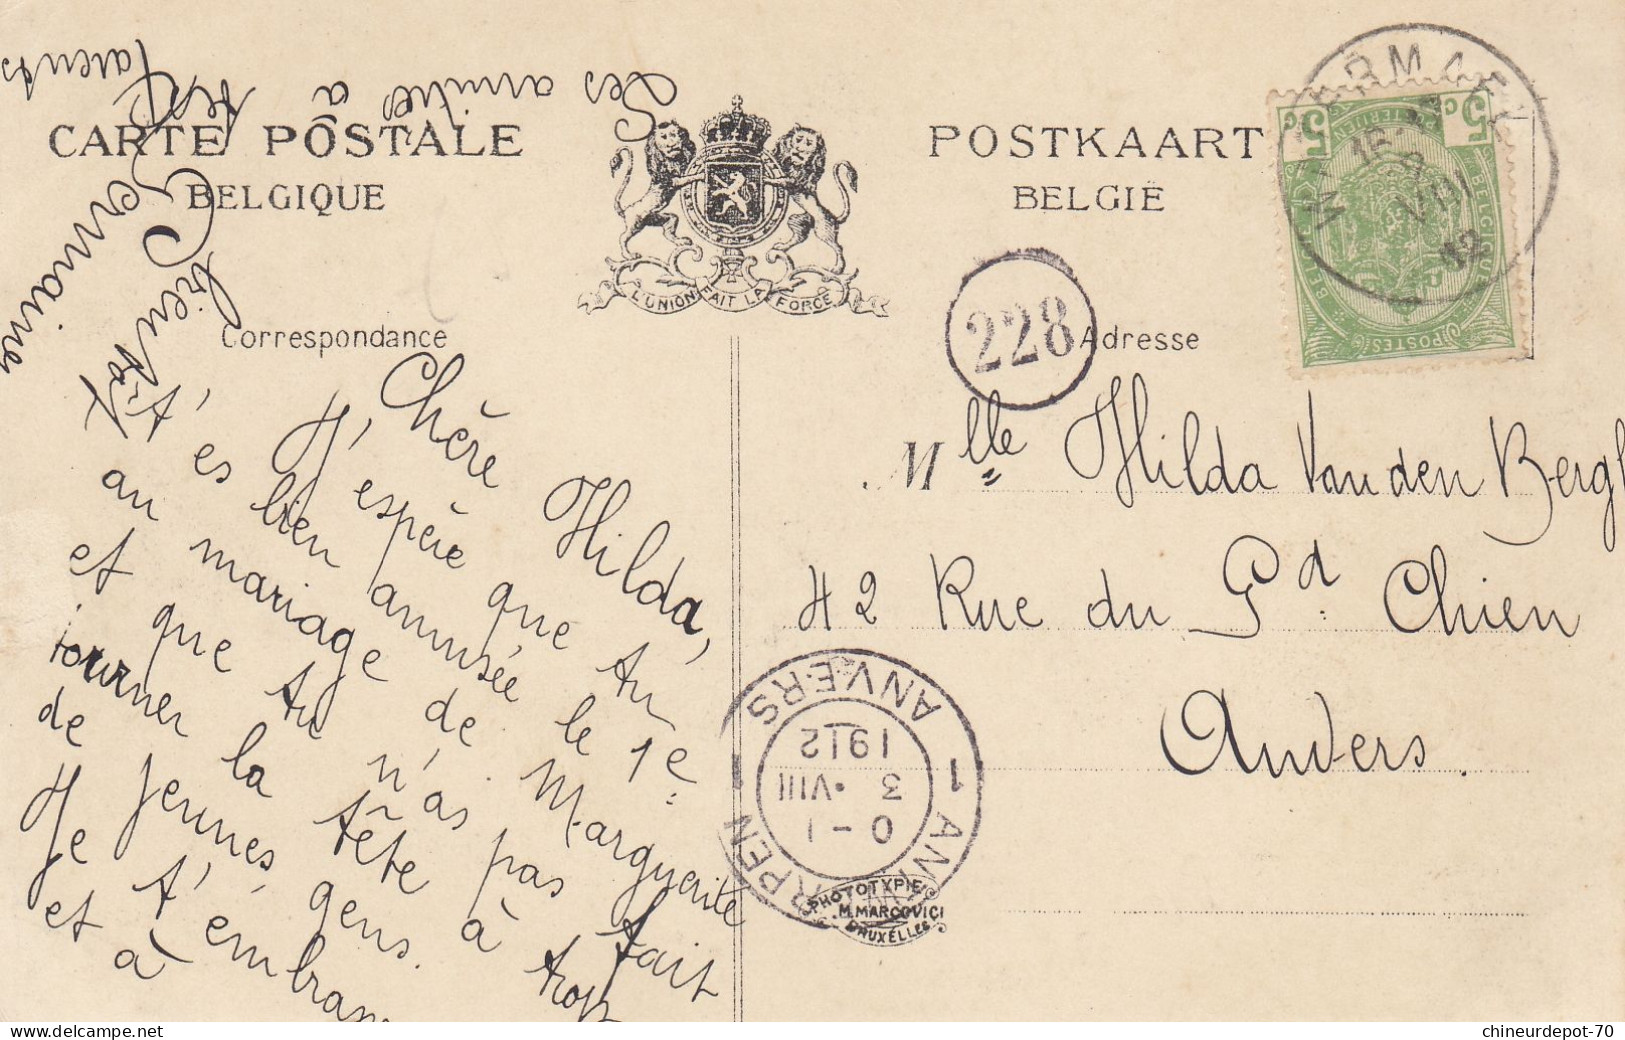 CARTE POSTALE
BELGIQUE
POSTKAART
BELGIË
L'UNION FAIT LA FORCE
Correspondance
Adresse
228
WATERMAEL
VIII
12
5 C
5 C
BELGIQUE
POSTES
Mlle Hilda Van den Bergh
42 Rue du Gd Chien
Anvers.
ANTWERPEN
1 ANVERS 1
0-1
3 ·VIII
1912
PHOTOTYPIE
M. MARCOVICI
BRUXELLES
Chère Hilda,
J'espère que tu
t'es bien amusée le 1e
au mariage de Marguerite
et que tu n'as pas fait
tourner la tête à trop
de jeunes gens.
Je t'embrasse
et à
bientôt
Germaine
Les amitiés à
tes
Parents
chineurdepot-70
delcampe.net